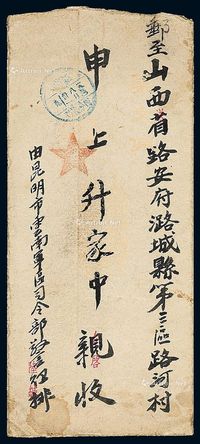 郵至山西省路安府潞城縣第三區路河村
申上升家中親收
由昆明市雲南軍區司令部警衛排